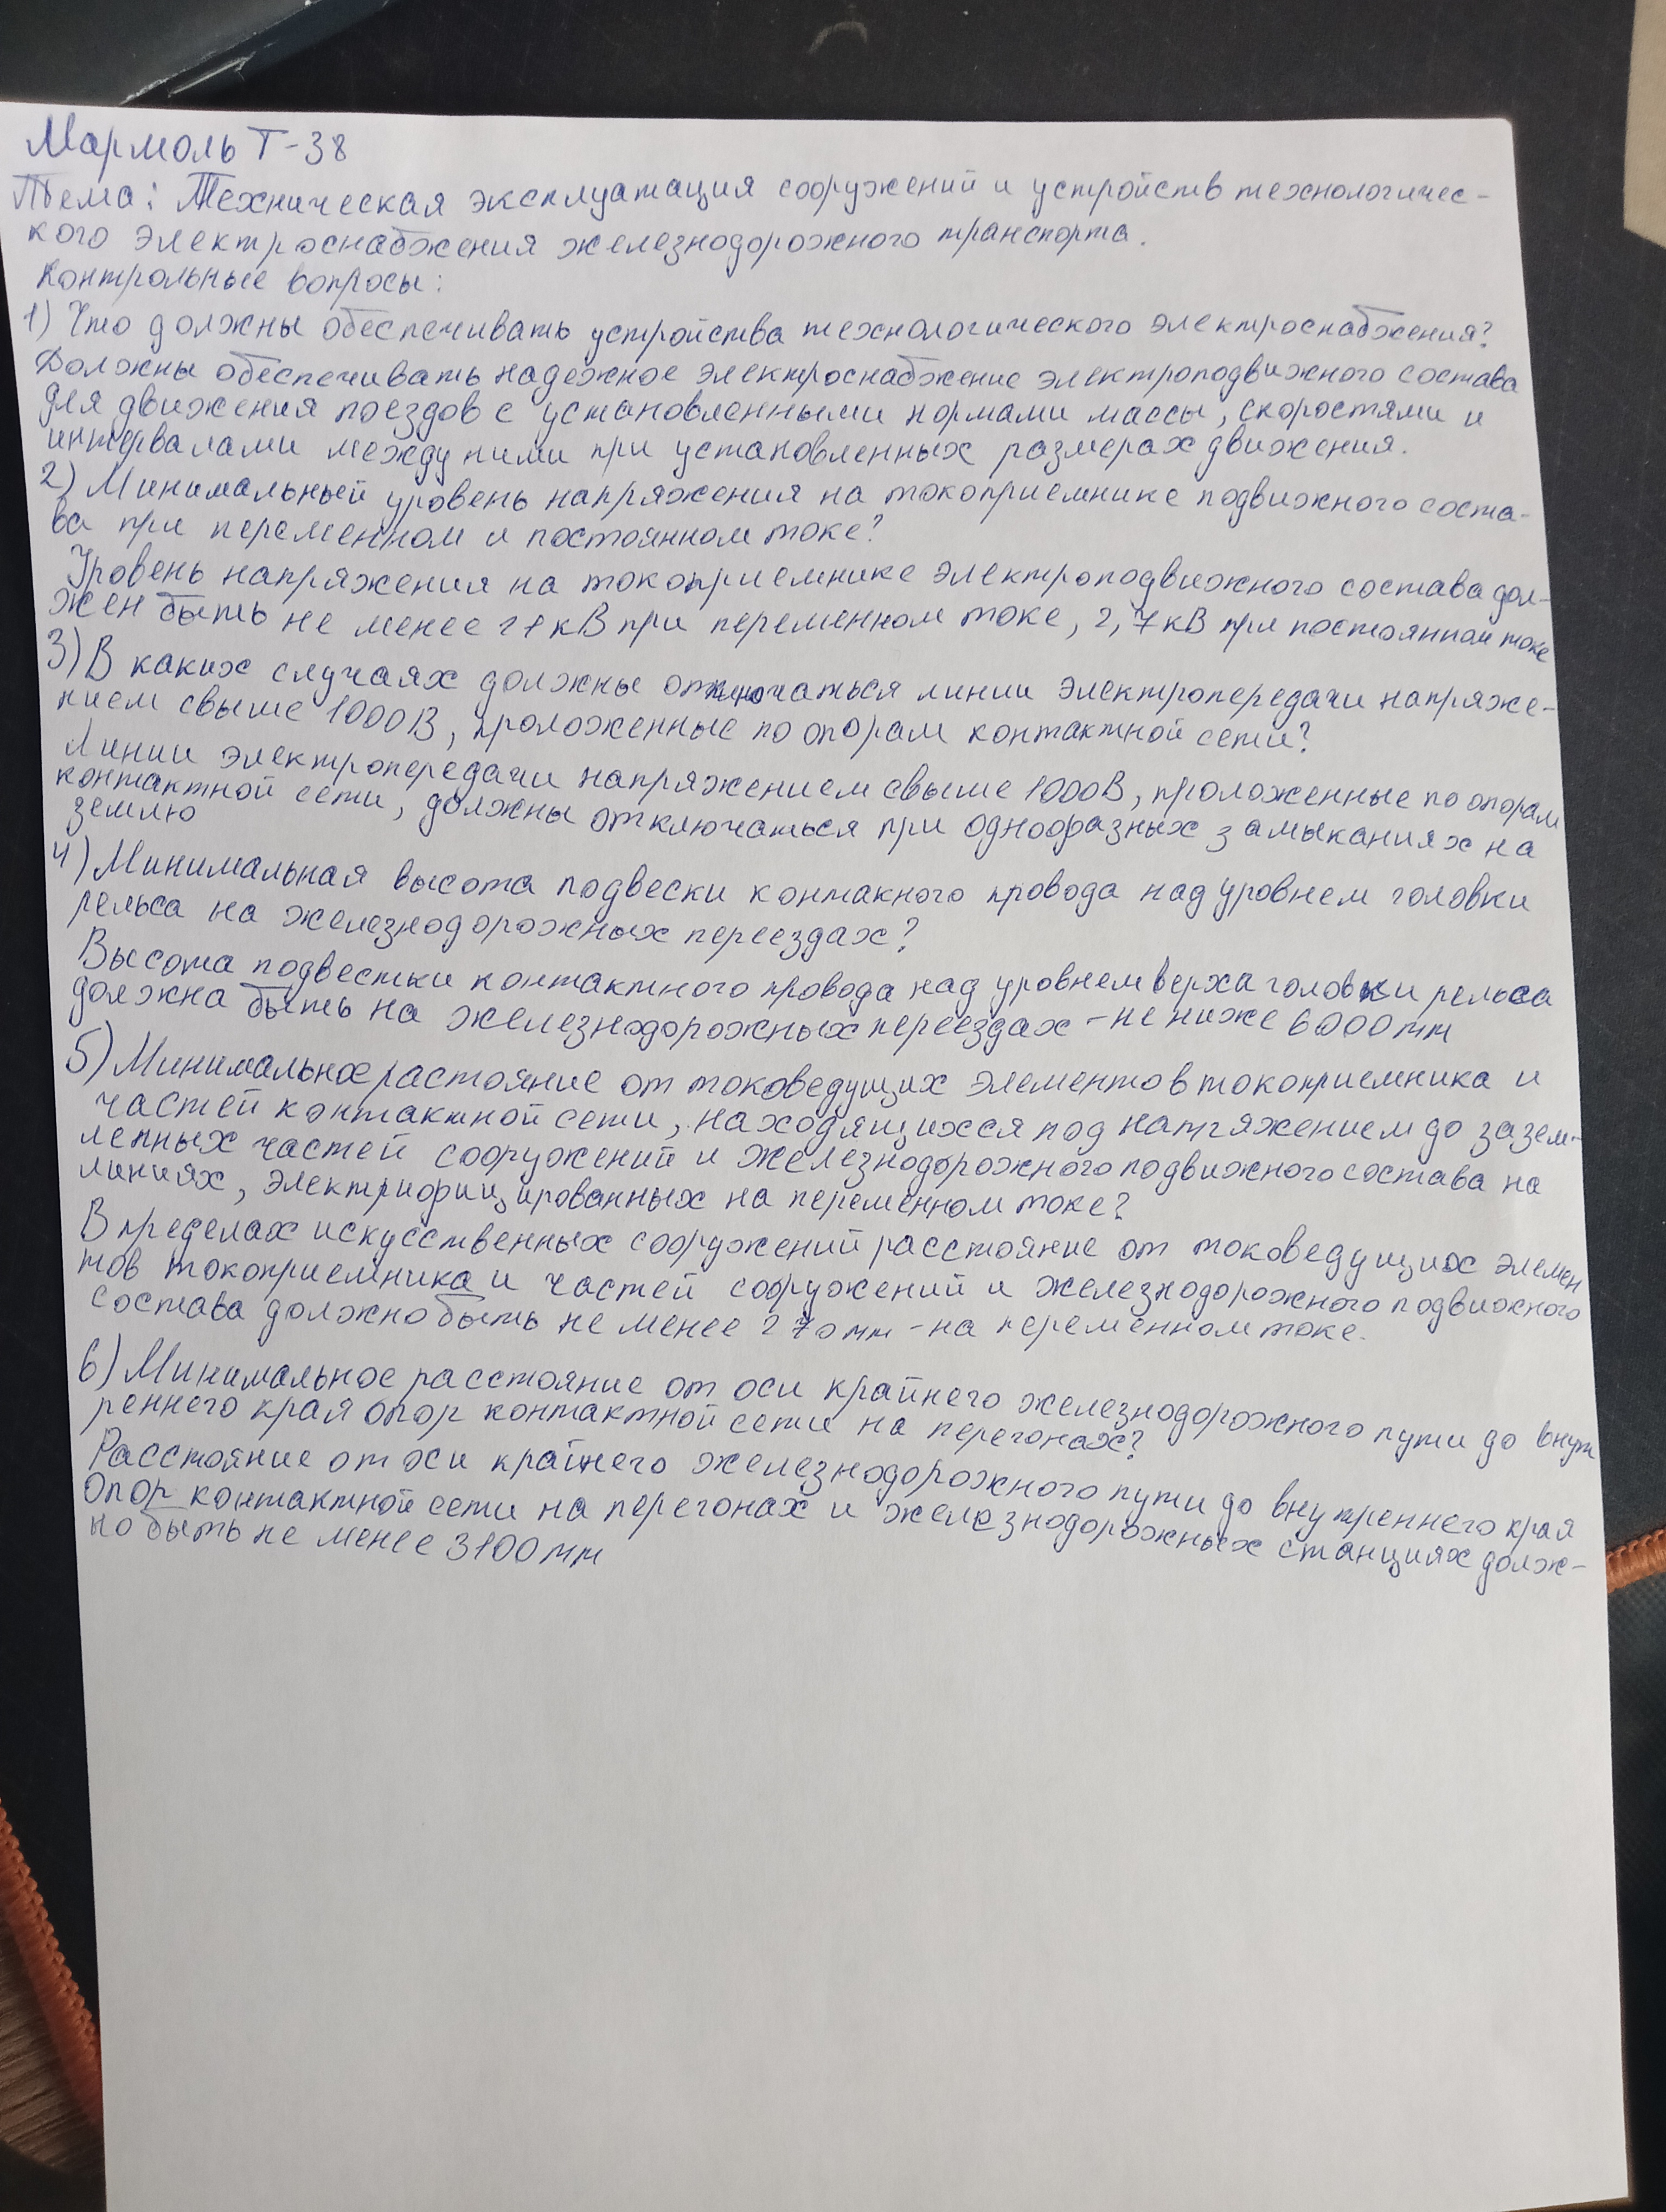 Мармоль Т-38
Тема: Техническая эксплуатация сооружений и устройств технологичес-
кого электроснабжения железнодорожного транспорта.
Контрольные вопросы:
1) Что должны обеспечивать устройства технологического электроснабжения?
Должны обеспечивать надежное электроснабжение электроподвижного состава
для движения поездов с установленными нормами массы, скоростями и
интервалами между ними при установленных размерах движения.
2) Минимальный уровень напряжения на токоприемнике подвижного соста-
ва при переменном и постоянном токе?
Уровень напряжения на токоприемнике электроподвижного состава дол-
жен быть не менее 21 кВ при переменном токе, 2,7 кВ при постоянном токе
3) В каких случаях должны отключаться линии электропередачи напряже-
нием свыше 1000В, проложенные по опорам контактной сети?
Линии электропередачи напряжением свыше 1000В, проложенные по опорам
контактной сети, должны отключаться при однофазных замыканиях на
землю
4) Минимальная высота подвески контакного провода над уровнем головки
рельса на железнодорожных переездах?
Высота подвестки контактного провода над уровнем верха головки рельса
должна быть на железнодорожных переездах - не ниже 6000 мм
5) Минимальное растояние от токоведущих элементов токоприемника и
частей контактной сети, находящихся под натяжением до зазем-
ленных частей сооружений и железнодорожного подвижного состава на
линиях, электрифицированных на переменном токе?
В пределах искусственных сооружений расстояние от токоведущих элемен
тов токоприемника и частей сооружений и железнодорожного подвижного
состава должно быть не менее 270 мм - на переменном токе.
6) Минимальное расстояние от оси крайнего железнодорожного пути до внут
реннего края опор контактной сети на перегонах?
Расстояние от оси крайнего железнодорожного пути до внутреннего края
опор контактной сети на перегонах и железнодорожных станциях долж-
но быть не менее 3100 мм